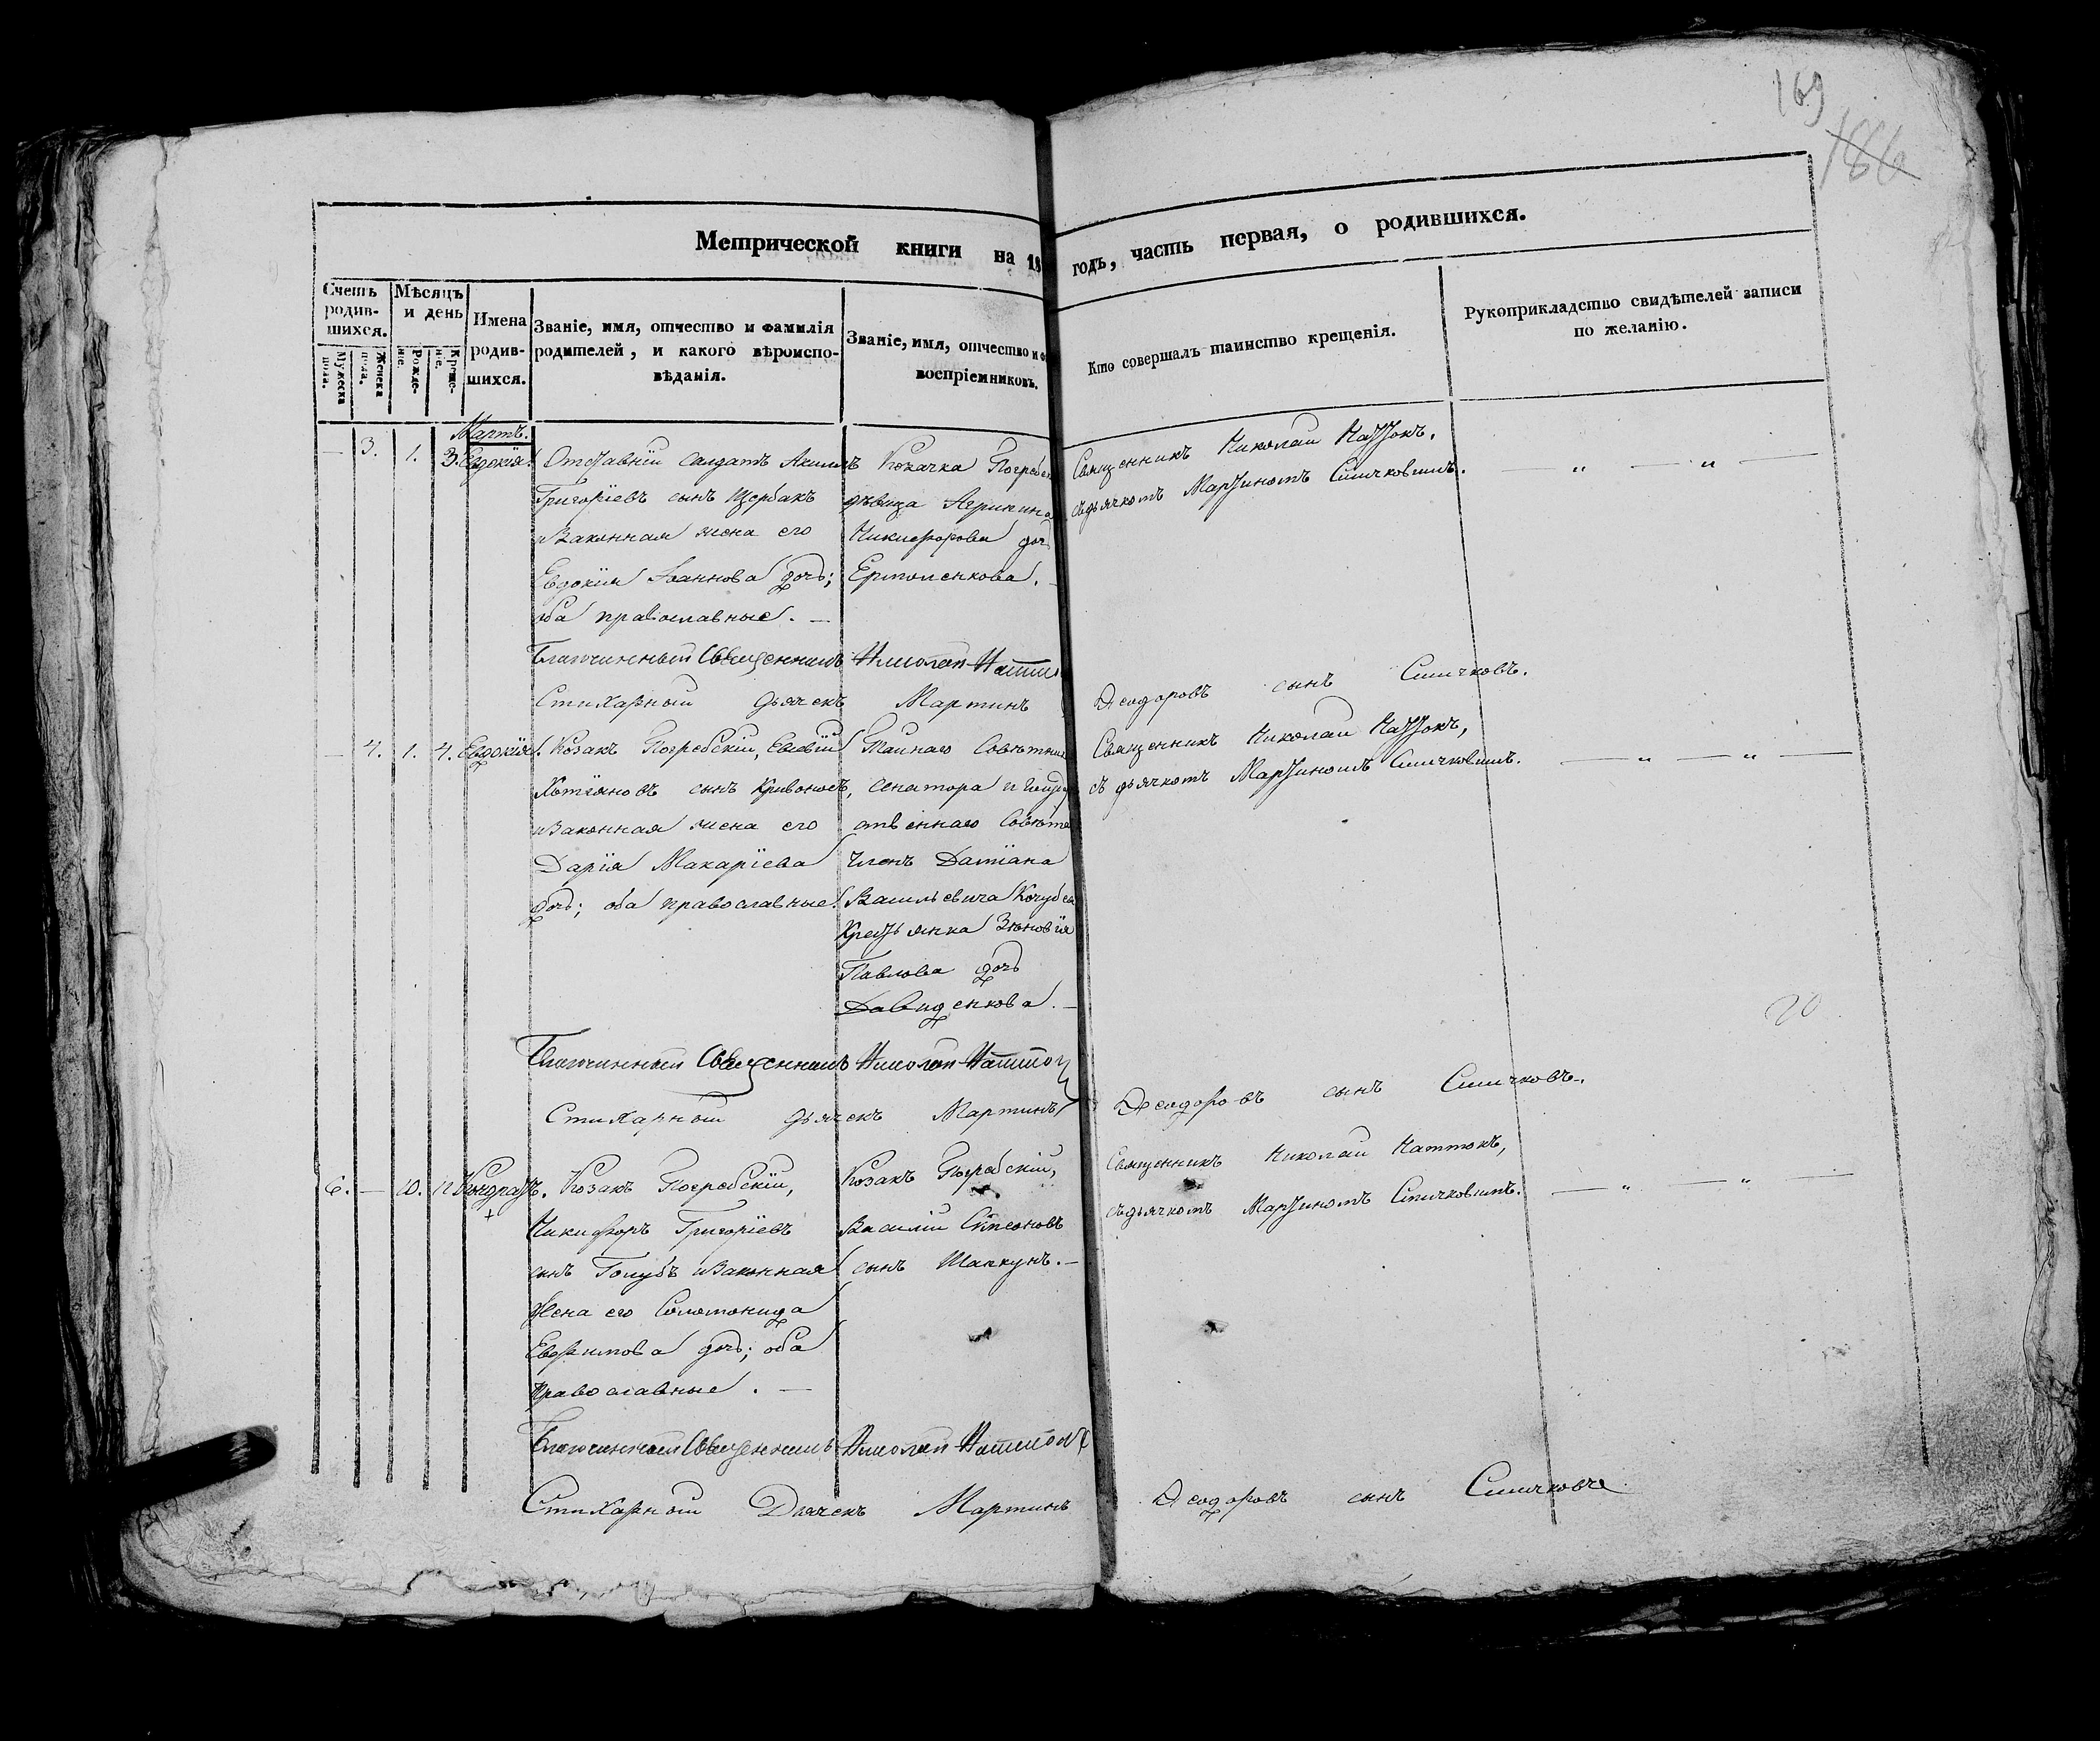 169
186
Метрической книги на 18 годъ, часть первая, о родившихся.
Счетъ родив-шихся.
Мужеска пола.
Женска пола.
Мѣсяцъ и день
Рожде-нїе.
Креще-нїе.
Имена родив-шихся.
Званіе, имя, отчество и фамилія
родителей, и какого вѣроиспо-
вѣданія.
Званіе, имя, отчество и ф
воспріемниковъ.
Кто совершалъ таинство крещенія.
Рукоприкладство свидѣтелей записи
по желанію.
Мартъ.
— 3. 1. 3. Евдокія.
Отставній салдатъ Акимъ
Григоріевъ сынъ Щербакъ
и законная жена его
Евдокія Іванова дочь;
оба православные. —
Козачка Погребс
дѣвица
Никифорова доч
Ермоленкова. —
Священникъ Николай Наттокъ,
съ дьячкомъ Мартиномъ Синчковимъ.
— „ — „ —
Благочинный Священникъ Николай Натток
Стихарный дьячекъ Мартинъ Ѳеодоровъ сынъ Синчковъ.
— 4. 1. 4. Евдокія.
Козакъ Погребскій,
сынъ Кривоносъ,
и законная жена его
Дарія Макаріева
дочь; оба православные.
Тайнаго Совѣтник
сенатора и Госуд
ственнаго Совѣта
Членъ Даміана
Васильевича Кочубея
Крестьянка Зѣновія
Павлова дочь
Давиденкова. —
Священникъ Николай Наттокъ,
съ дьячкомъ Мартиномъ Синчковимъ.
— „ — „ —
20
Благочинный Священникъ Николай Натток
Стихарный дьячекъ Мартинъ Ѳеодоровъ сынъ Синчковъ.
6. — 10. 12 Кондратъ.
+
Козакъ Погребскій,
Никифоръ Григоріевъ
сынъ Голубъ и законная
жена его Соломонида
Евфимова дочь; оба
православные. —
Козакъ Погребскій,
Василій Симеоновъ
сынъ Шапкунъ. —
Священникъ Николай Наттокъ,
съ дьячкомъ Мартиномъ Синчковимъ.
— „ — „ —
Благочинный Священникъ Николай Наттокъ
Стихарный Дьячекъ Мартинъ Ѳеодоровъ сынъ Синчковъ